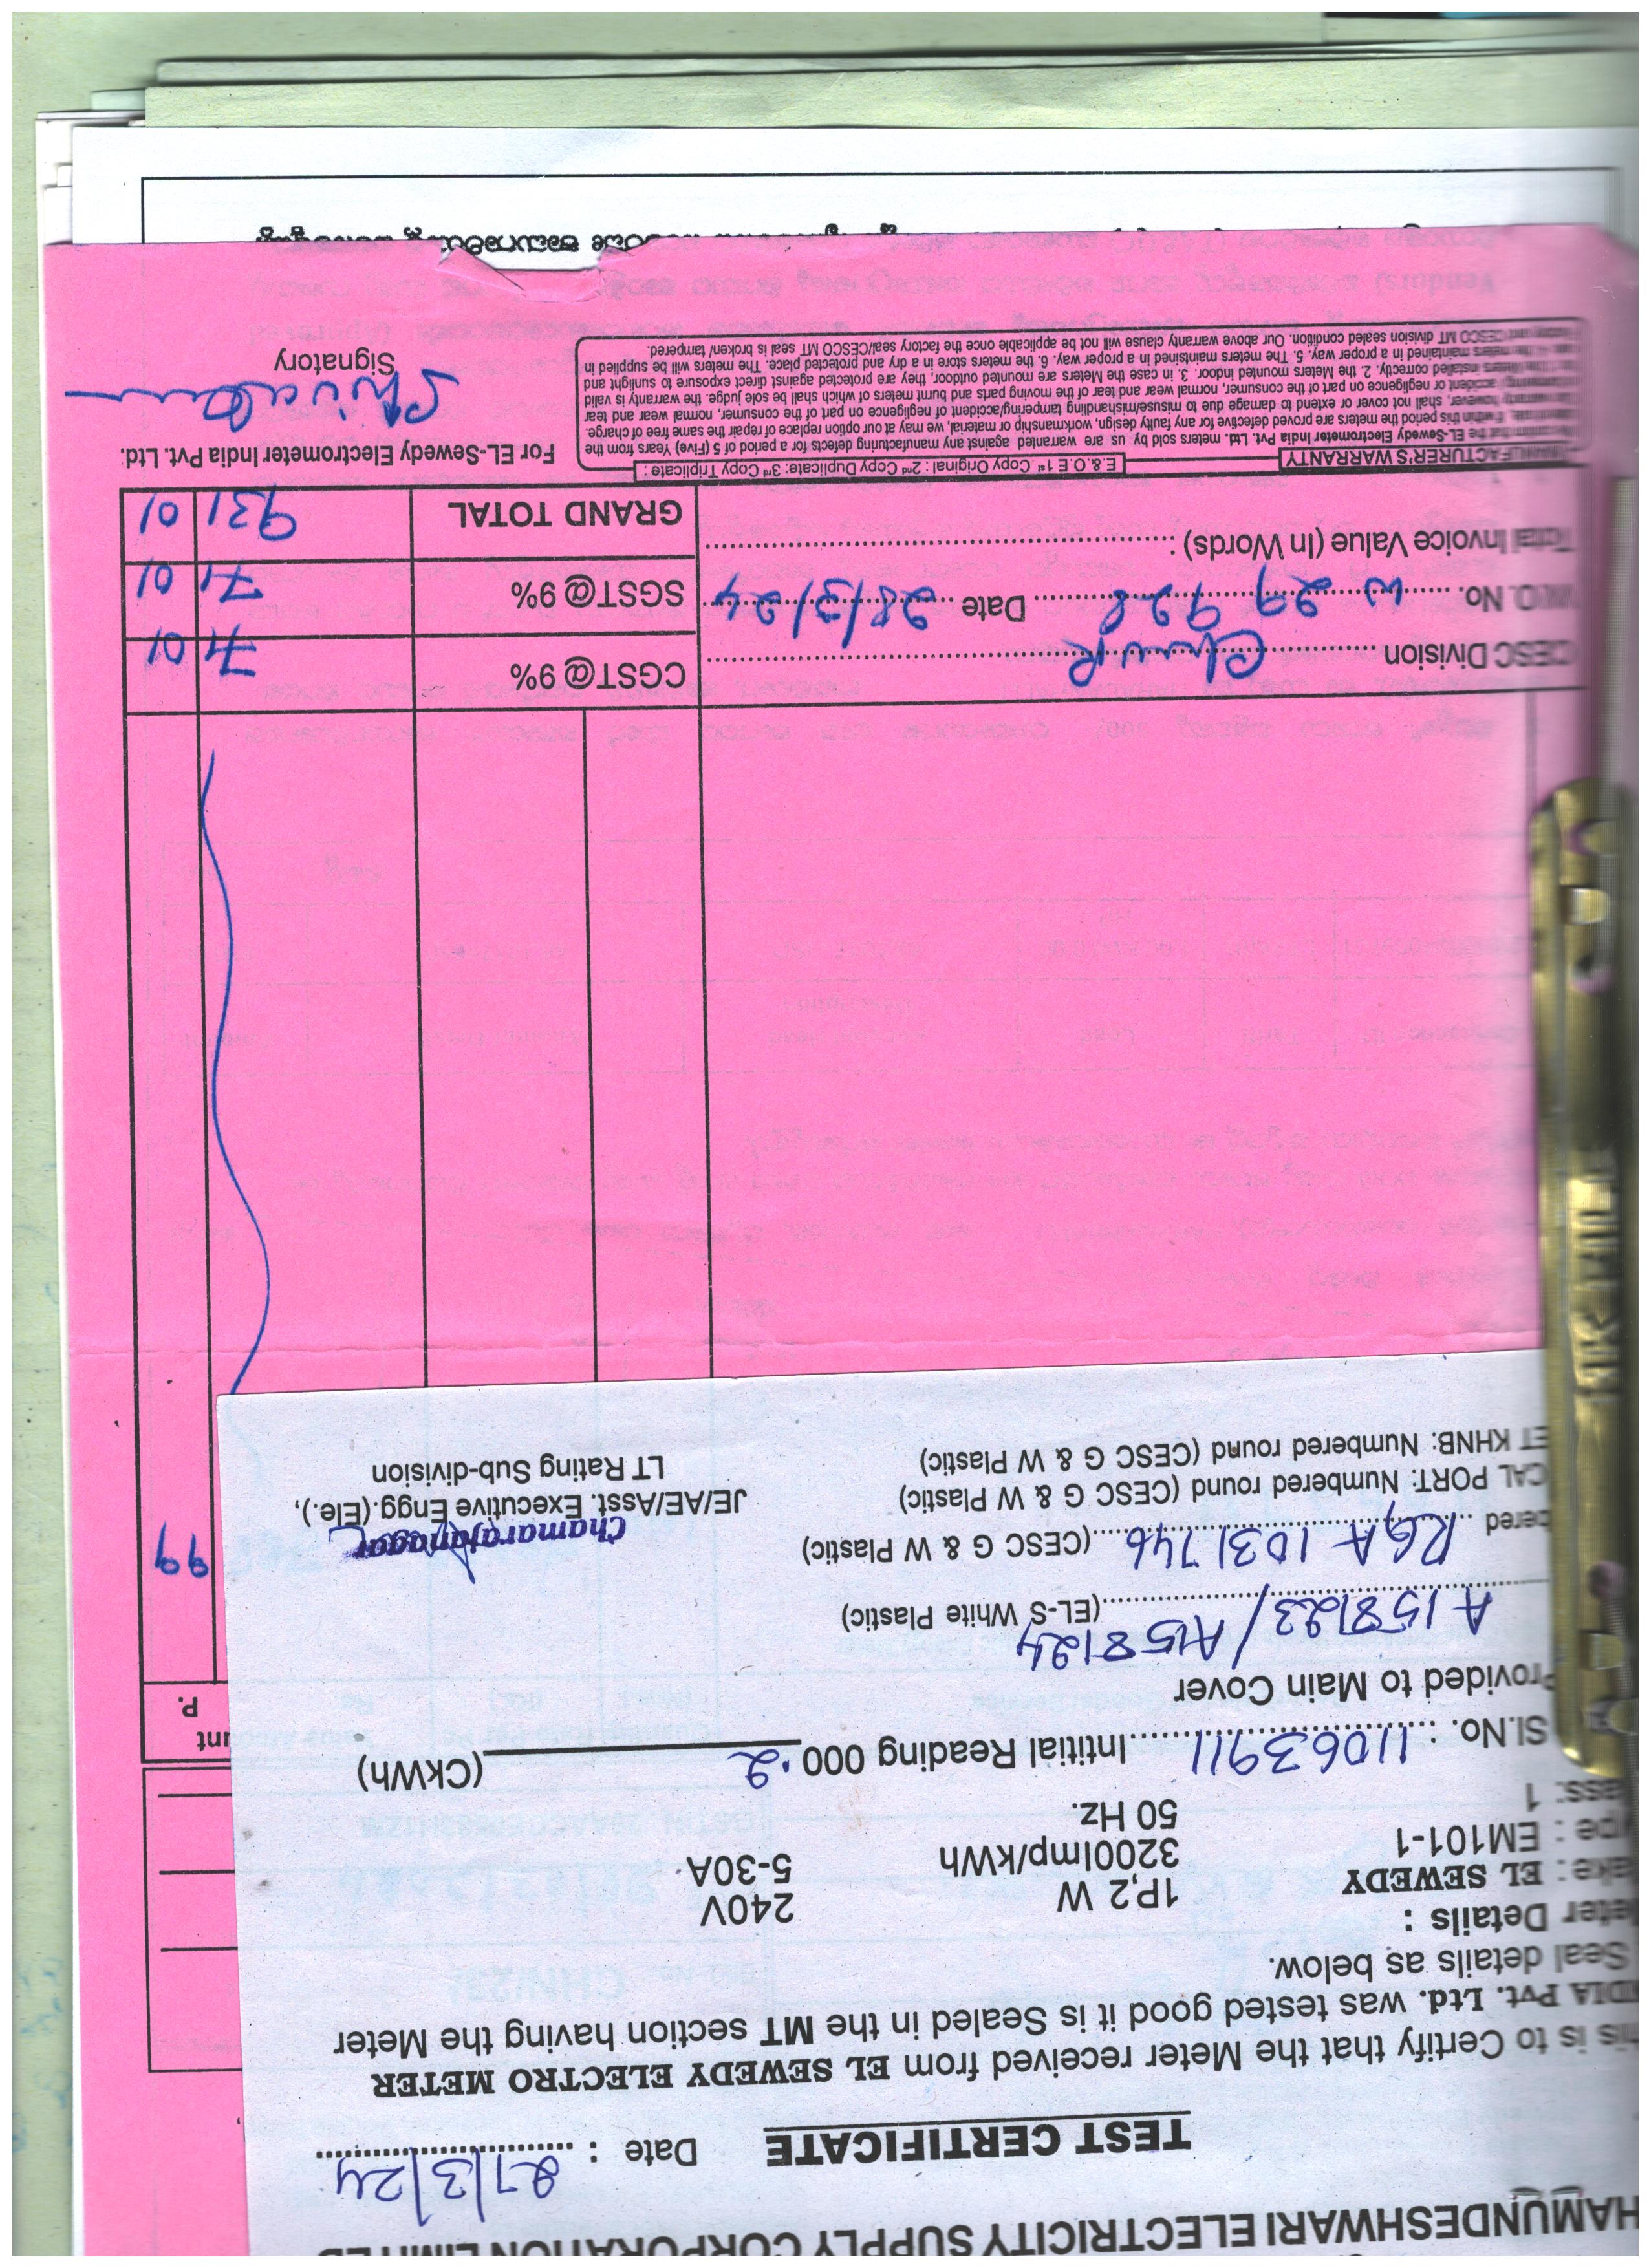 HAMUNDESHWARI ELECTRICITY SUPPLY CORPORATION LIMITED
27/3/24
TEST CERTIFICATE Date :
is is to Certify that the Meter received from EL SEWEDY ELECTRO METER
DIA Pvt. Ltd. was tested good it is Sealed in the MT section having the Meter
Seal details as below.
eter Details :
ake : EL SEWEDY 1P,2 W 240V
pe : EM101-1 3200Imp/kWh 5-30A
ass: 1 50 Hz.
Sl.No. : 11063911 Intitial Reading 000.2 (CkWh)
Provided to Main Cover
A158123/A158124 (EL-S White Plastic)
cered RGA 1031746 (CESC G & W Plastic) Chamarajanagar
CAL PORT: Numbered round (CESC G & W Plastic) JE/AE/Asst. Executive Engg.(Ele.),
ET KHNB: Numbered round (CESC G & W Plastic) LT Rating Sub-division
unt
P.
99
CESC Division ChnR CGST@ 9% 71 01
W.O. No. W 29 928 Date 28/3/24 SGST@ 9% 71 01
Total Invoice Value (In Words) : GRAND TOTAL 931 01
MANUFACTURER'S WARRANTY E.& O.E 1st Copy Original : 2nd Copy Duplicate: 3rd Copy Triplicate :
the EL-Sewedy Electrometer India Pvt. Ltd. meters sold by us are warranted against any manufacturing defects for a period of 5 (Five) Years from the
If within this period the meters are proved defective for any faulty design, workmanship or material, we may at our option replace of repair the same free of charge.
warranty however, shall not cover or extend to damage due to misuse/mishandling tampering/accident of negligence on part of the consumer, normal wear and tear
accident or negligence on part of the consumer, normal wear and tear of the moving parts and burnt meters of which shall be sole judge. the warranty is valid
Meters installed correctly. 2. the Meters mounted indoor. 3. in case the Meters are mounted outdoor, they are protected against direct exposure to sunlight and
meters maintained in a proper way. 5. The meters maintained in a proper way. 6. the meters store in a dry and protected place. The meters will be supplied in
CESCO MT division sealed condition. Our above warranty clause will not be applicable once the factory seal/CESCO MT seal is broken/ tampered.
For EL-Sewedy Electrometer India Pvt. Ltd.
Signatory